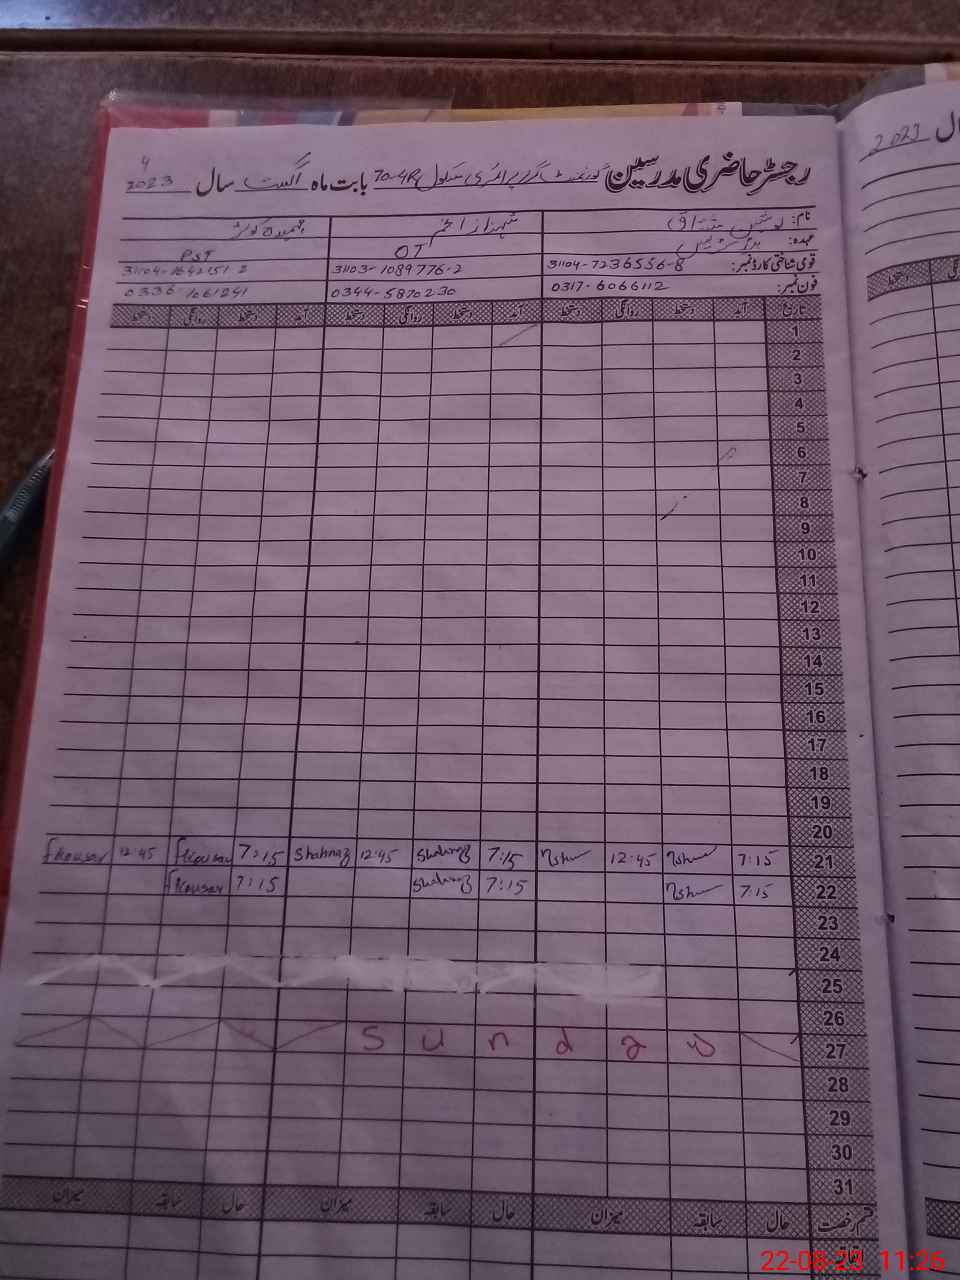 رجسٹر حاضری مدرسین گورنمنٹ گرلز پرائمری سکول 70-4R بابت ماہ اگست سال 2023
نام: شہناز اختر
عہدہ: OT PST
قومی شناختی کارڈ نمبر: 31104-7236556-8 31103-1089776-2 31104-1642151-2
فون نمبر: 0317-6066112 0344-5870230 0336-1061241
تاریخ آمد دستخط روانگی دستخط آمد دستخط روانگی دستخط آمد دستخط روانگی دستخط
1
2
3
4
5
6
7
8
9
10
11
12
13
14
15
16
17
18
19
20
21 7:15 12:45 7:15 Shahnaz 12:45 Shahnaz 7:15 fkousar 12:45 fkousar
22 7:15 7:15 Shahnaz 7:15 fkousar
23
24
25
26
27 Sunday
28
29
30
31
قسم رخصت حال سابقہ میزان حال سابقہ میزان حال سابقہ میزان
2023
22-08-23 11:26